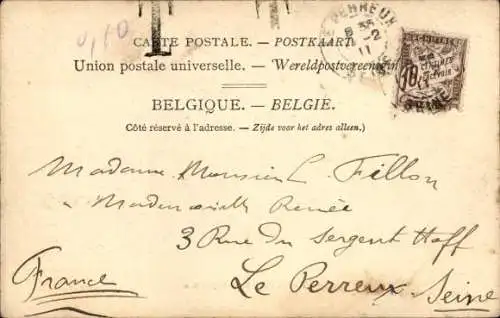 0,10
T
LE PERREUX
8 35
-2
11
SEINE
10 CENTIMES
CARTE POSTALE. — POSTKAART
Union postale universelle. — Wereldpostvereeniging
BELGIQUE. — BELGIE.
Côté réservé à l'adresse. — Zijde voor het adres alleen.)
Madame Monsieur L. Fillon
Mademoiselle Renée
3 Rue du Sergent Hoff
Le Perreux Seine
France